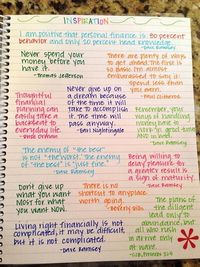 INSPIRATION
I am positive that personal finance is 80 percent
behavior and only 20 percent head knowledge.
- Dave Ramsey
Never spend your
money before you
have it.
- Thomas Jefferson
There are plenty of ways
to get ahead. The first is
so basic I'm almost
embarrassed to say it:
spend less than
you earn.
Thoughtful
financial
planning can
easily take a
backseat to
everyday life.
Never give up on
a dream because
of the time it will
take to accomplish
it. The time will
pass anyway.
- Earl Nightingale
Remember, your
ways of handling
money have to
work in good time
AND in bad.
The enemy of "the best"
is not "the worst." The enemy
of "the best" is "just fine."
- Dave Ramsey
Being willing to
delay pleasure for
a greater result
is a sign of maturity.
- Dave Ramsey
Don't give up
what you want
MOST for what
you want NOW.
There is no
shortcut to anyplace
worth going.
- Beverly Sills
The plans of
the diligent
lead only to
abundance, but
all who rush
in arrive only
at want.
Living right financially is not
complicated; it may be difficult,
but it is not complicated.
- Dave Ramsey